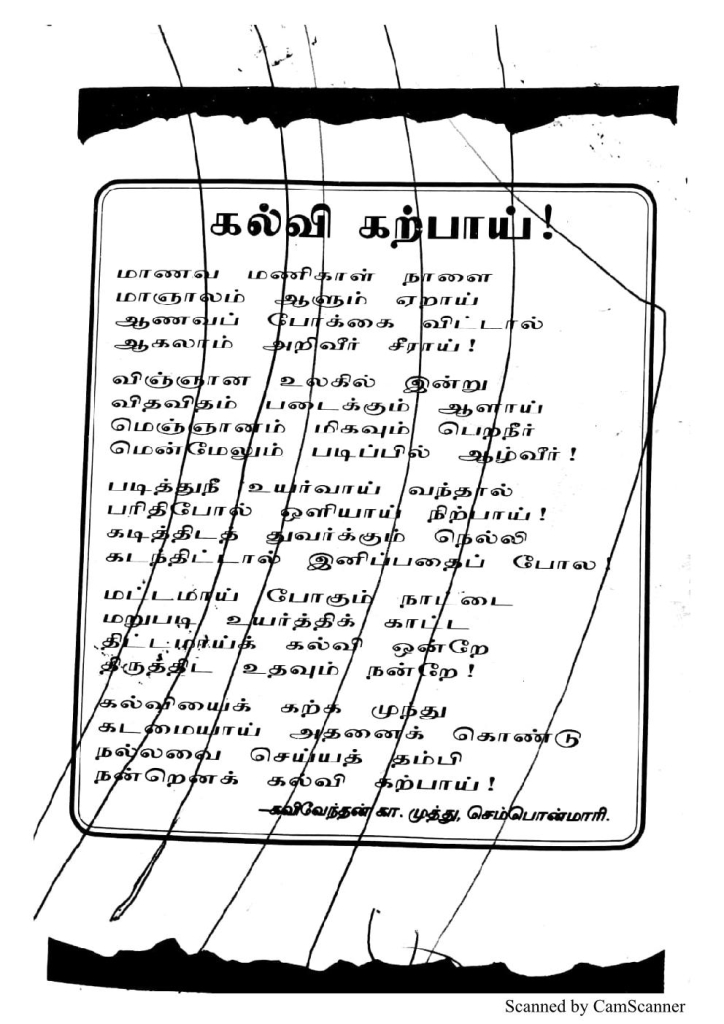 கல்வி கற்பாய்!
மாணவ மணிகாள் நாளை
மாஞாலம் ஆளும் ஏறாய்
ஆணவப் போக்கை விட்டால்
ஆகலாம் அறிவீர் சீராய்!
விஞ்ஞான உலகில் இன்று
விதவிதம் படைக்கும் ஆளாய்
மெஞ்ஞானம் மிகவும் பெறநீர்
மென்மேலும் படிப்பில் ஆழ்வீர்!
படித்துநீ உயர்வாய் வந்தால்
பரிதிபோல் ஒளியாய் நிற்பாய்!
கடித்திடத் துவர்க்கும் நெல்லி
கடந்திட்டால் இனிப்பதைப் போல!
மட்டமாய் போகும் நாட்டை
மறுபடி உயர்த்திக் காட்ட
திட்டமாய்க் கல்வி ஒன்றே
திருத்திட உதவும் நன்றே!
கல்வியைக் கற்க முந்து
கடமையாய் அதனைக் கொண்டு
நல்லவை செய்யத் தம்பி
நன்றெனக் கல்வி கற்பாய்!
–கவிவேந்தன் கா. முத்து, செம்பொன்மாரி.
Scanned by CamScanner